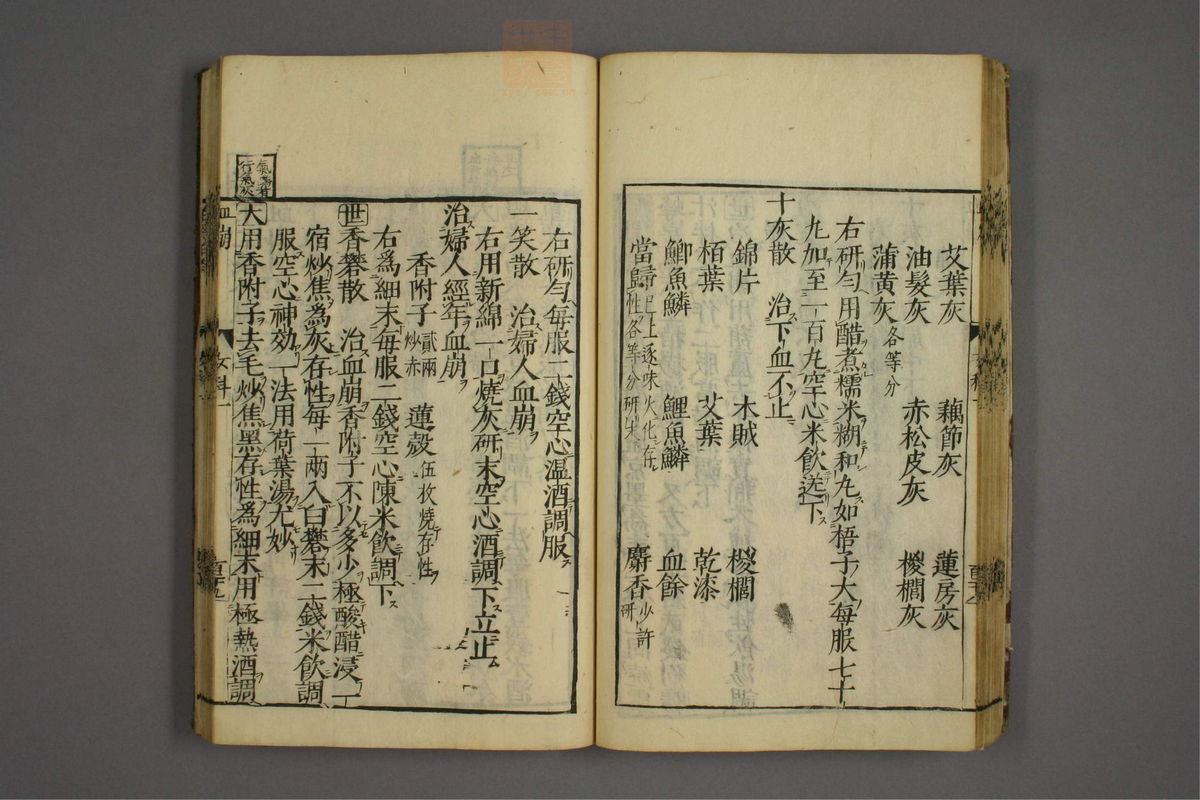 艾葉灰　藕節灰　蓮房灰
油髮灰　赤松皮灰　椶櫚灰
蒲黄灰 各等分
右研匀用醋煮糯米糊和丸如梧子大每服七十
丸加至一百丸空心米飲送下
十灰散　治下血不止
錦片　木賊　椶櫚
栢葉　艾葉　乾漆
鯽魚鱗　鯉魚鱗　血餘
當歸 已上逐味火化存性各等分研末　麝香 少許研
右研匀每服二錢空心温酒調服
一笑散　治婦人血崩
右用新綿一口燒灰研末空心酒調下立止
治婦人經年血崩
香附子 貳兩炒赤　蓮殻 伍枚燒存性
右爲細末每服二錢空心陳米飲調下
世香礬散　治血崩香附子不以多少極酸醋浸一
宿炒焦爲灰存性每一兩入白礬末二錢米飲調
服空心神効一法用荷葉湯尤妙
大用香附子去毛炒焦黒存性爲細末用極熱酒調
血崩　女科一